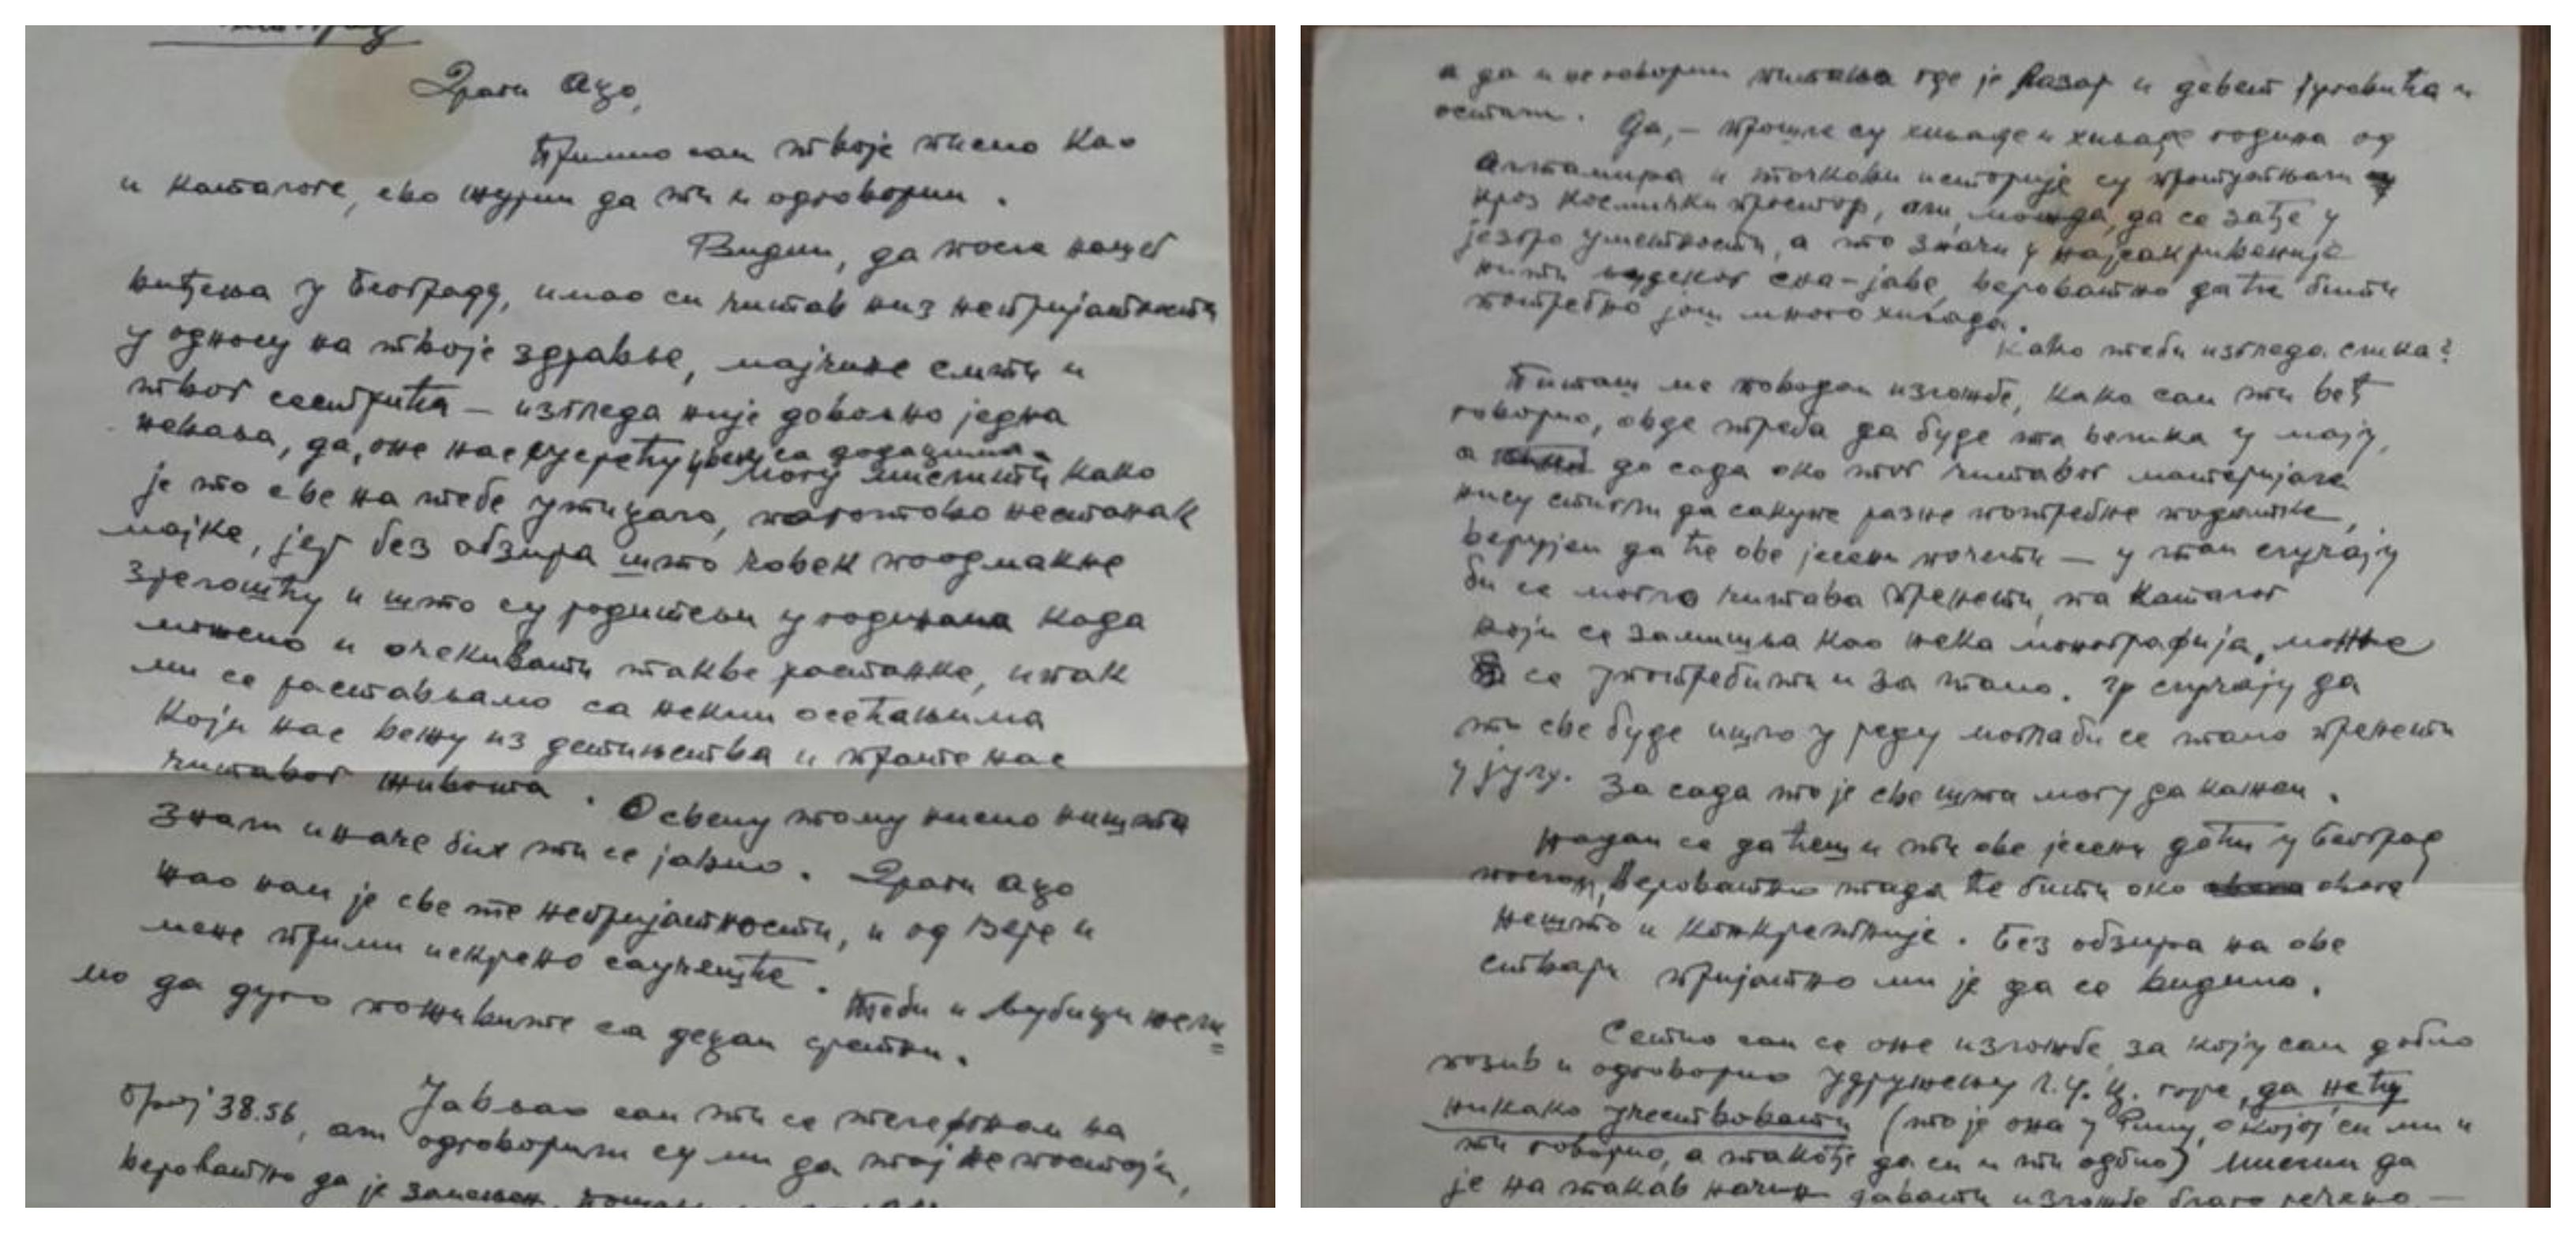 Драги Ацо,
Примио сам твоје писмо као
и каталоге, ево журим да ти и одговорим.
Видим, да после нашег
виђења у Београду, имао си читав низ непријатности
у односу на твоје здравље, мајчине смрти и
твог сестрића — изгледа није довољно једна
невоља, да, оне нас сусрећу увек са додацима.
Могу мислити како
је то све на тебе утицало, поготово нестанак
мајке, јер без обзира што човек поодмакне
зрелошћу и што су родитељи у годинама када
можемо и очекивати такве растанке, ипак
ми се растављамо са неким осећањима
који нас вежу из детињства и прате нас
читавог живота. О свему томе нисмо ништа
знали иначе бих ти се јавио. Драги Ацо
жао нам је све те непријатности, и од Вере и
мене прими искрено саучешће. Теби и Љубици жели-
мо да дуго поживите са децом сретни.
Јављао сам ти се телефоном на
број 38.56, али одговорили су ми да тај не постоји,
вероватно да је замењен.
а да и не говорим питања где је Лазар и девет Југовића и
остали. Да, — прошле су хиљаде и хиљаде година од
Алтамира и точкови историје су протутњали
кроз космички простор, али, можда, да се зађе у
језгро уметности, а то значи у најсакривеније
нити људског сна-јаве, вероватно да ће бити
потребно још много хиљада.
Како теби изгледа слика?
Питаш ме поводом изложбе, како сам ти већ
говорио, овде треба да буде та велика у мају,
а до сада око тог читавог материјала
нису стигли да сакупе разне потребне податке,
верујем да ће ове јесени почети — у том случају
би се могла читава пренети, па каталог
који се замишља као нека монографија, може
се употребити и за тамо. У случају да
то све буде ишло у реду могла би се тамо пренети
у јулу. За сада то је све шта могу да кажем.
Надам се да ћеш и ти ове јесени доћи у Београд
послом, вероватно тада ће бити око овога
нешто и конкретније. Без обзира на ове
ствари пријатно ми је да се видимо.
Сетио сам се оне изложбе за коју сам добио
позив и одговорио Удружењу Л. У. Ц. горе, да нећу
никако учествовати (то је она у Риму, о којој си ми и
ти говорио, а такође да си и ти одбио) Мислим да
је на такав начин давати изложбе благо речено —